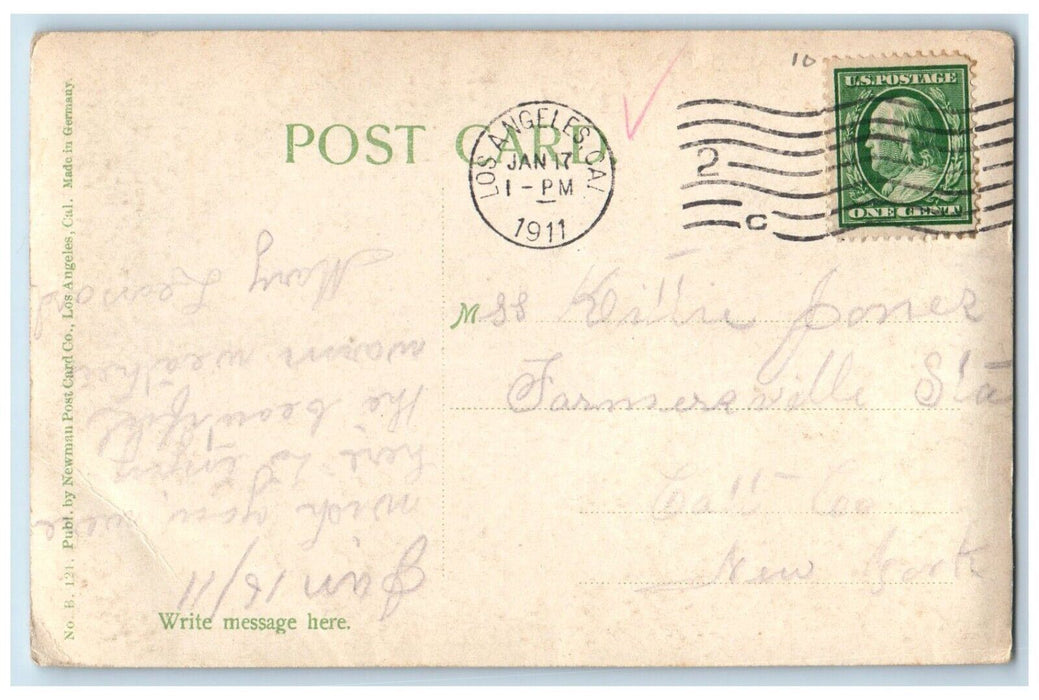 10
U.S. POSTAGE
ONE CENT
POST CARD
LOS ANGELES, CAL
JAN 17
1-PM
1911
2
C
Miss Kittie Jones
Farmersville Sta
Catt Co
New York
Jan 16/11
wish you were
here to enjoy
the beautiful
warm weather
Mary Leonard
Write message here.
No. B. 121. Publ. by Newman Post Card Co., Los Angeles, Cal. Made in Germany.